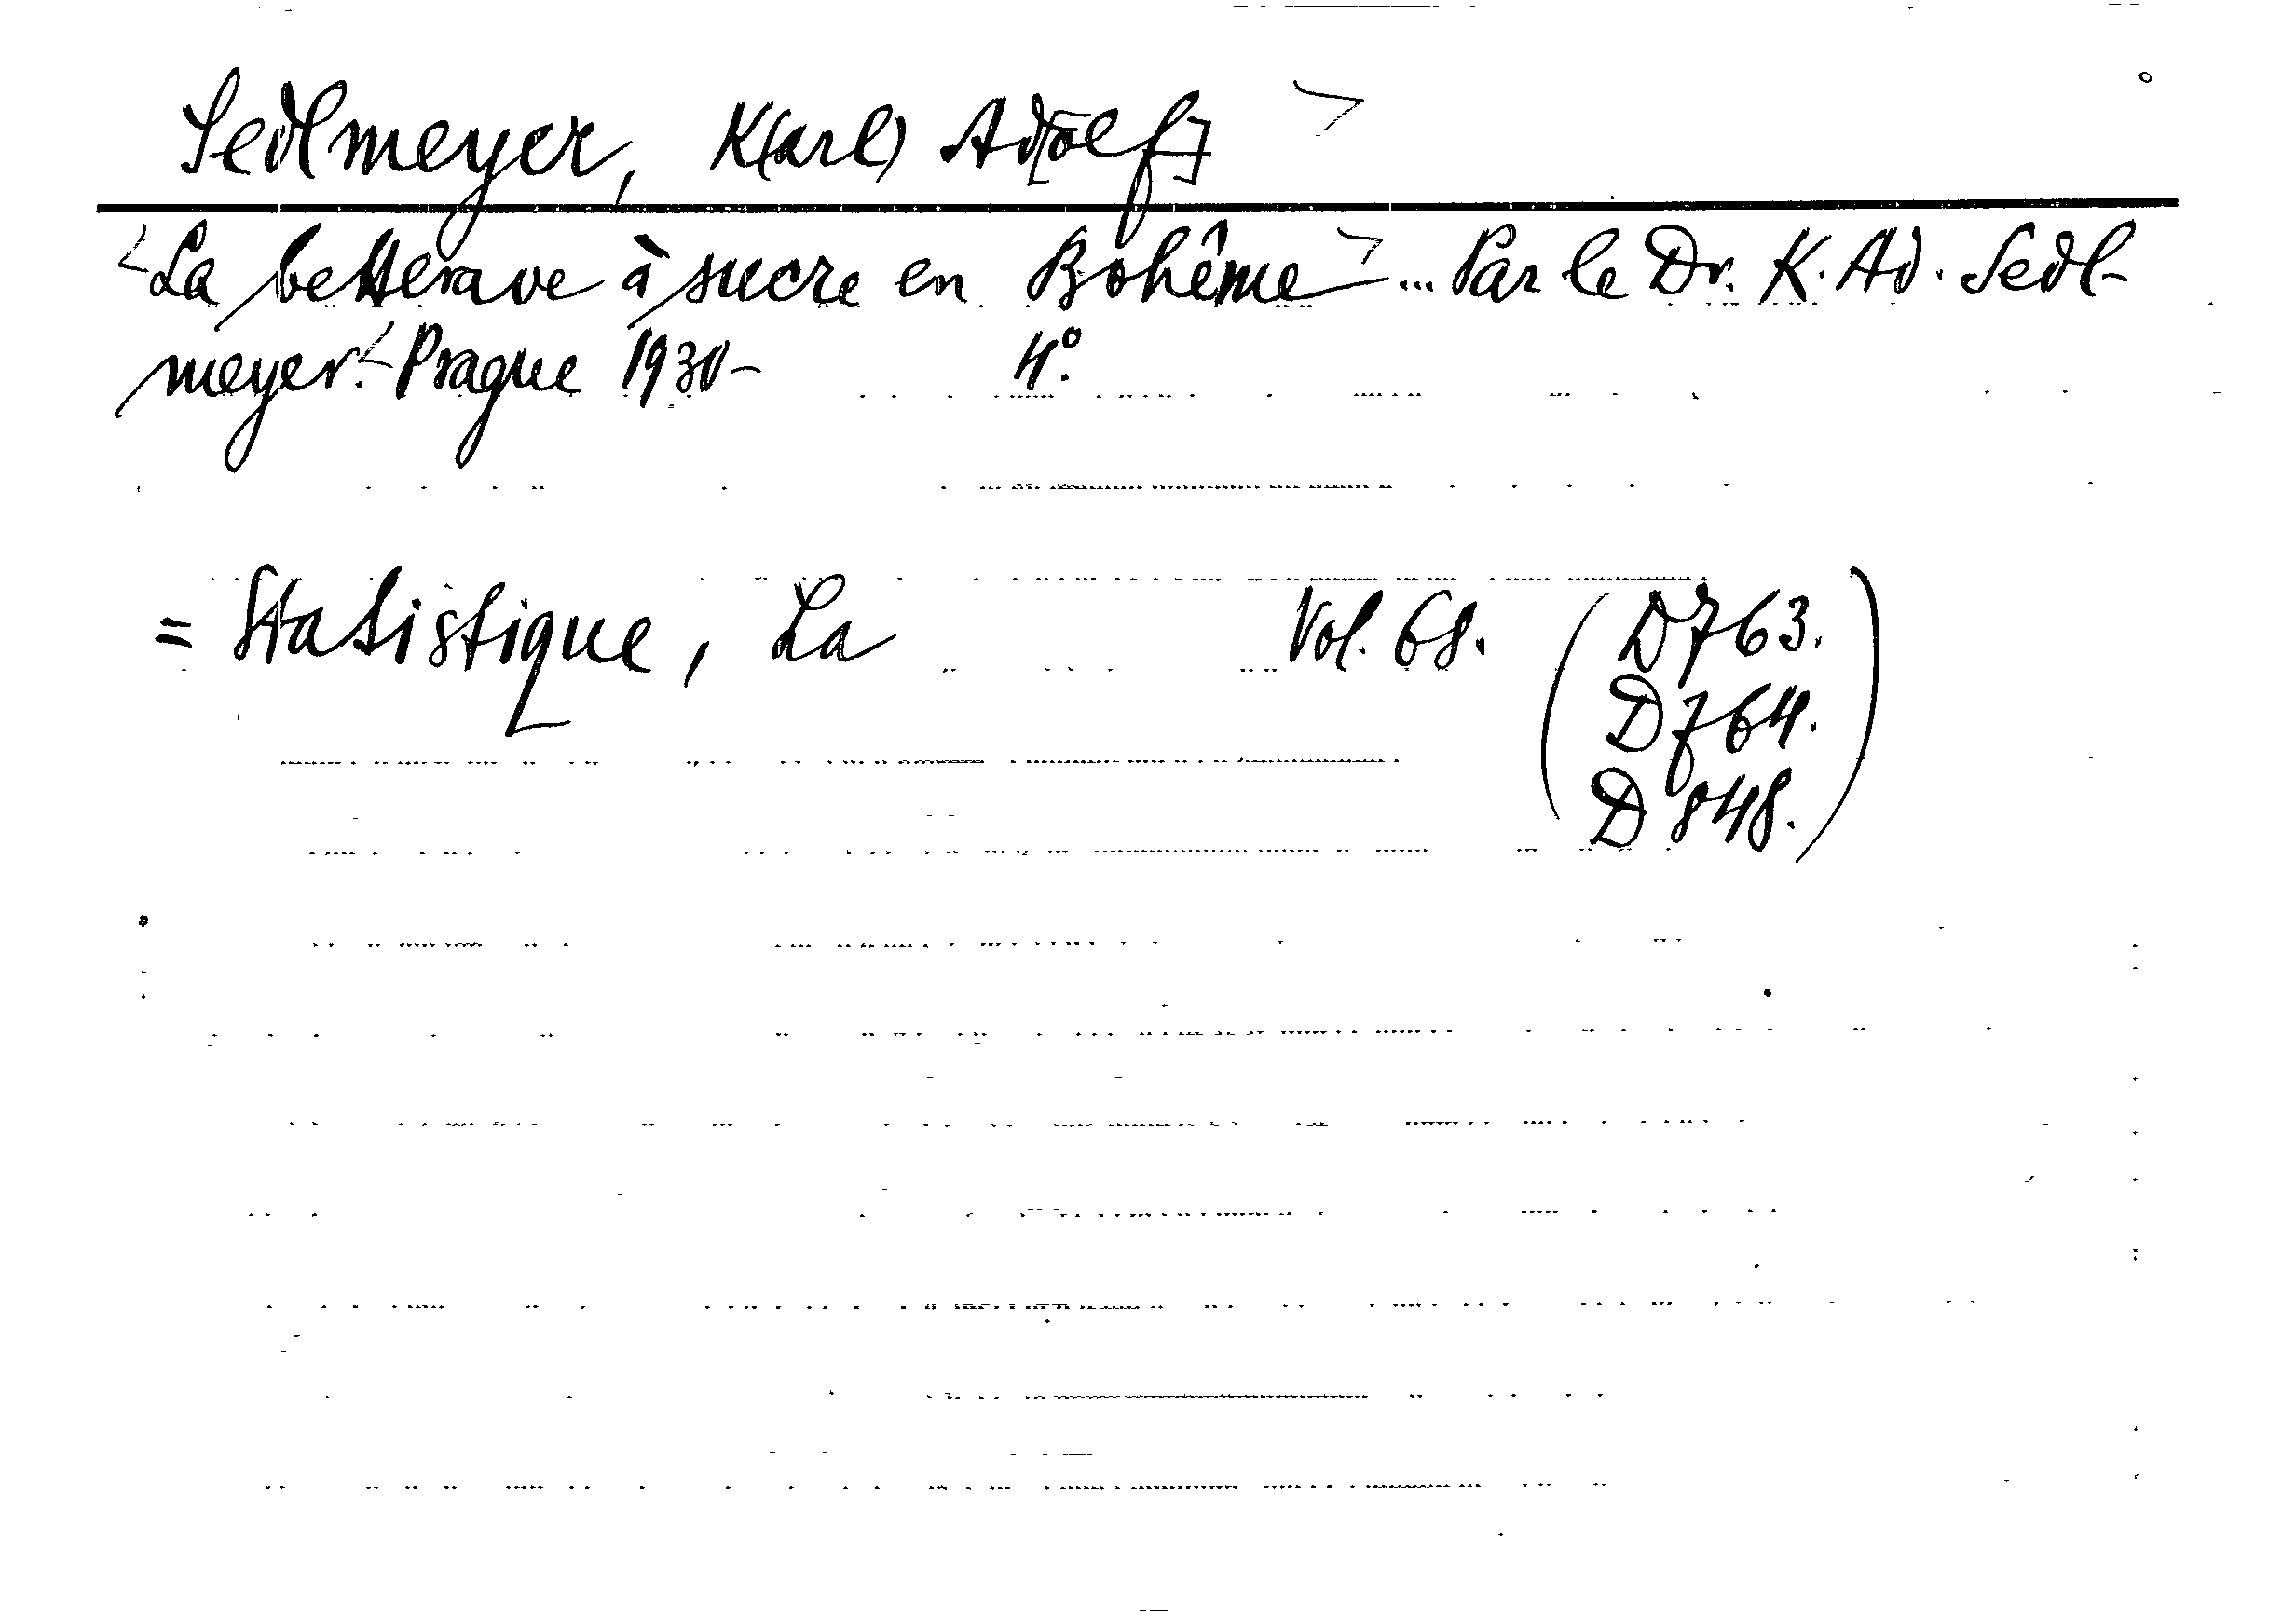 Sedlmeyer, K(arl) Ad[olf] >
<La betterave à sucre en Bohême> ... Par le Dr. K. Ad. Sedl-
meyer. < Prague 1930- 4°.
= Statistique, La Vol. 68. (D763.
D764.
D848.)